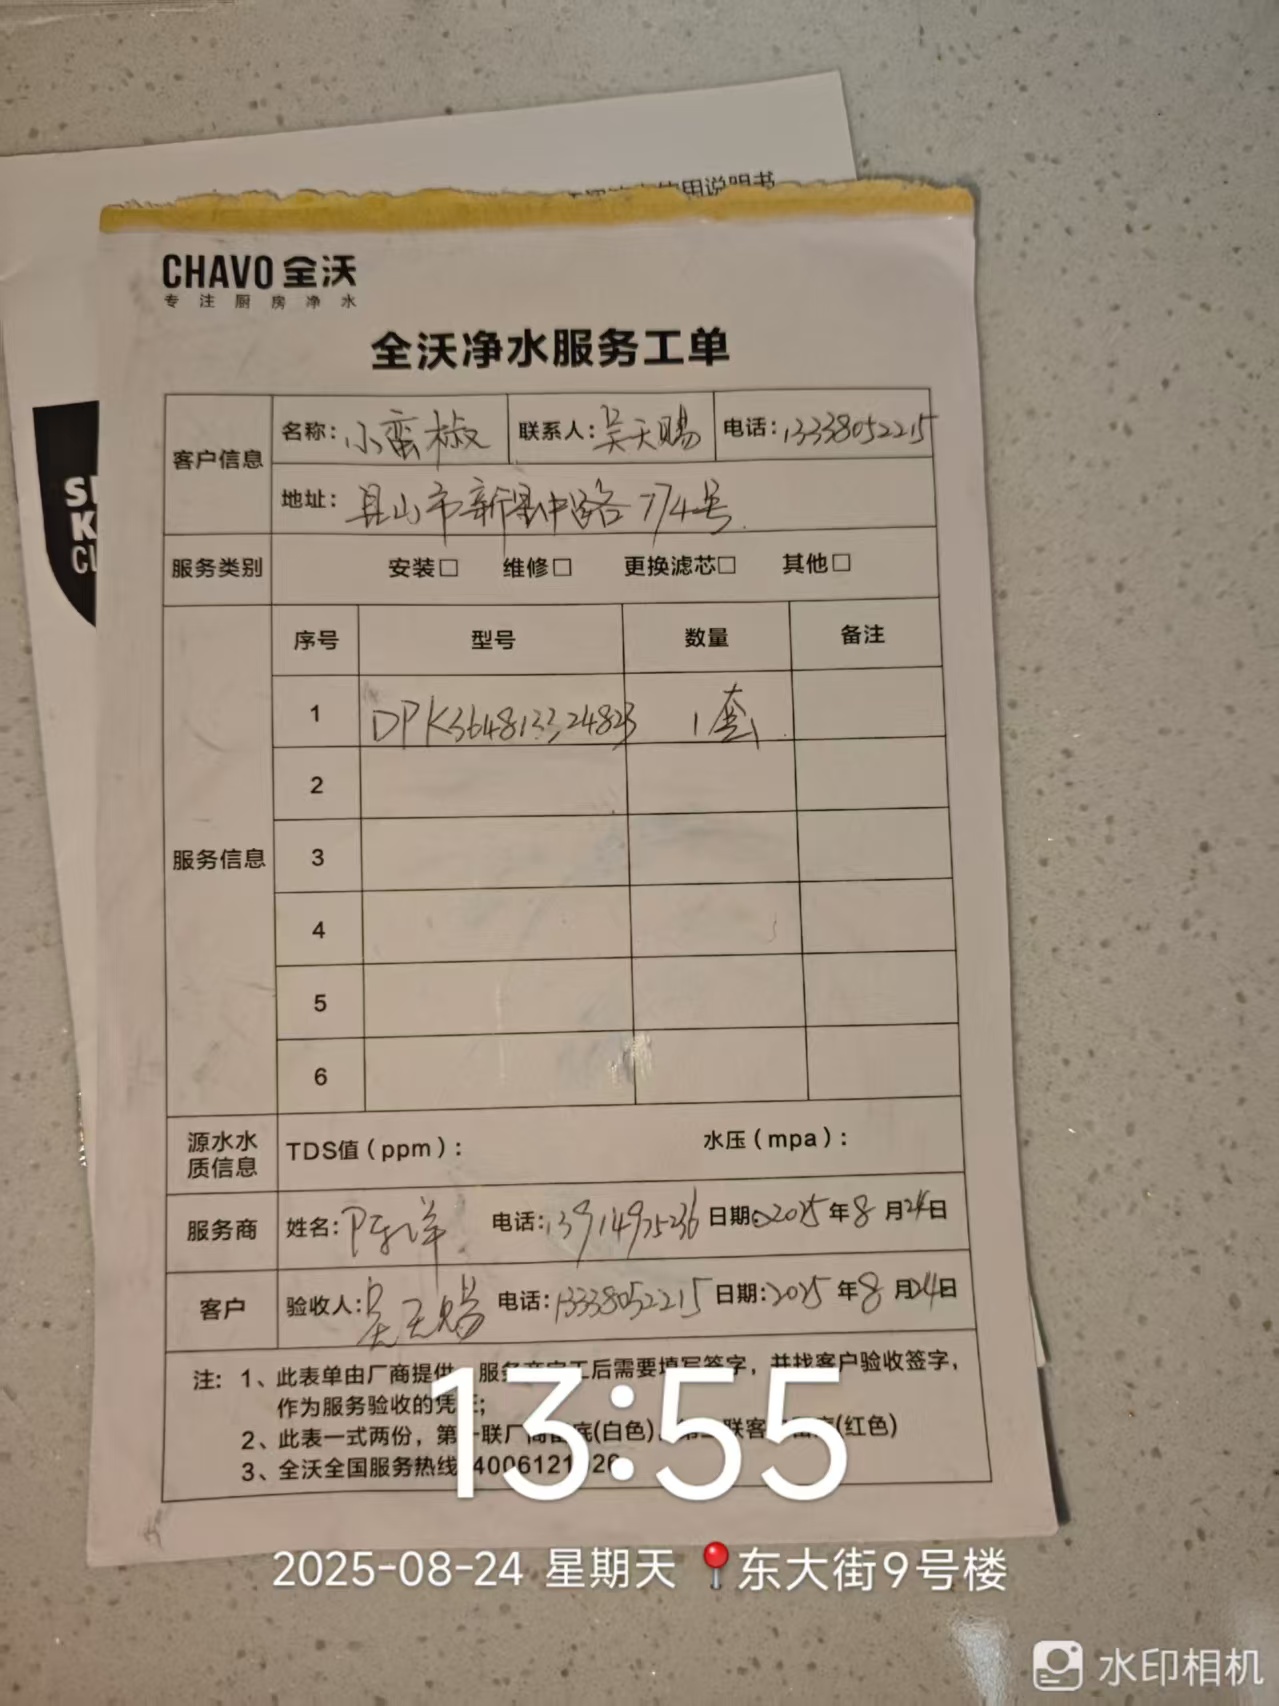 使用说明书
CHAVO 全沃
专注厨房净水
全沃净水服务工单
客户信息
名称：小蛮椒 联系人：吴天赐 电话：13338052215
地址：昆山市新昆中路774号
服务类别 安装□ 维修□ 更换滤芯□ 其他□
服务信息
序号 型号 数量 备注
1 DPK3648133324823 1套
2
3
4
5
6
源水水质信息 TDS值（ppm）： 水压（mpa）：
服务商 姓名：陈洋 电话：13914975236 日期：2025年8月24日
客户 验收人：吴天赐 电话：13338052215 日期：2025年8月24日
注：1、此表单由厂商提供，服务商完工后需要填写签字，并找客户验收签字，
作为服务验收的凭证；
2、此表一式两份，第一联厂商留底(白色)，第二联客户留底(红色)
3、全沃全国服务热线
SI
K
CL
13:55
2025-08-24 星期天 东大街9号楼
水印相机